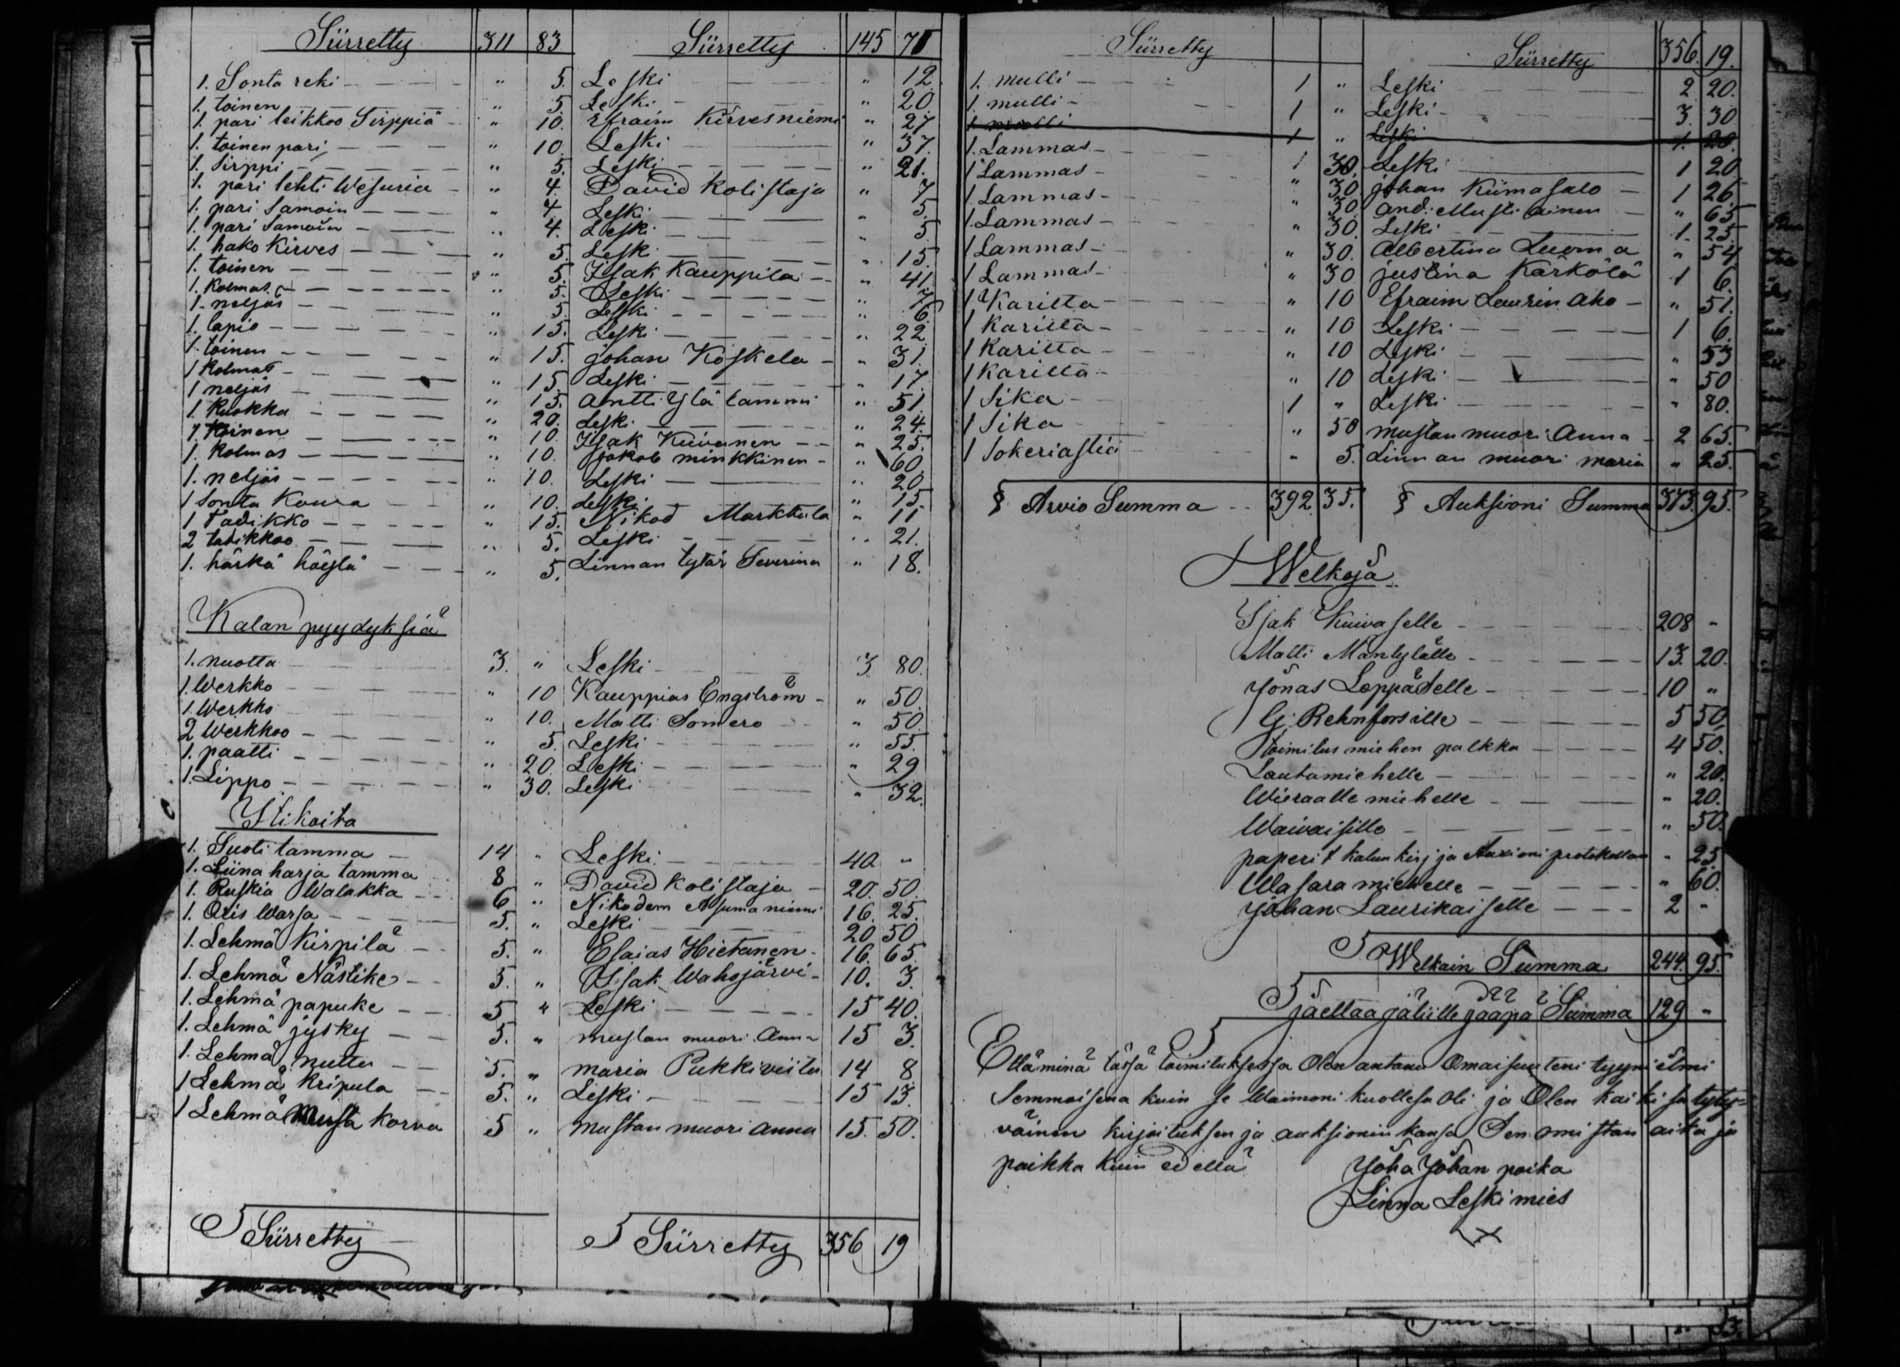 Siirretty 311 83 Siirretty 145 71
1. Sonta reki " 5. Leski " 12.
1. toinen " 5. Leski " 20
1. pari leikkoo Sirppiä " 10. Efraim Kirvesniemi " 27
1. toinen pari " 10. Leski " 37.
1. Sirppi " 5. Leski " 21.
1. pari lehti Wesuria " 4. David Kolistaja " 7
1. pari Samoin " 4. Leski " 5
1. pari Samoin " 4. Leski " 5
1. hako Kirves " 5. Leski " 15
1. toinen " 5 Isak Kauppila " 41
1. Kolmas " 5. Leski " 7
1. neljäs " 5 Leski " 6.
1. lapio " 15. Leski " 22
1. toinen " 15. Johan Koskela " 31.
1 Kolmas " 15 Leski " 17.
1 neljäs " 15. Antti Ylä tammi " 51.
1. Kuokka " 20. Leski " 24.
1. toinen " 10. Isak Kuivanen " 25.
1. Kolmas " 10. Jakob minkkinen " 60.
1. neljäs " 10. Leski " 20
1 Sonta Koura " 10. Leski " 15
1 Tadikko " 15. Nikod Markkula " 11
2 tadikkoo " 5. Leski " 21.
1. härkä häystä " 5. Linnan tytär Severina " 18.
Kalan pyydyksiä
1. nuotta 3. " Leski 3 80.
1. Werkko " 10 Kauppias Engström " 50.
1. Werkko " 10. Matti Somero " 50
2 Werkkoo " 5. Leski " 55.
1. paatti " 20. Leski " 29
1. Lippo " 30. Leski " 32.
Itikoita
1. Suoli tamma 14 " Leski 40. "
1. Liina harja tamma 8 " David Kolistaja 20. 50.
1. Ruskia Walakka 6 " Nikodem Asumaniemi 16. 25.
1. Oris Warsa 5. " Leski 20 50
1. Lehmä Kirpilä 5. " Esaias Hietanen 16. 65.
1. Lehmä Nästike 5. " Isak Wahojärvi 10. 3.
1. Lehmä papuke 5 " Leski 15 40.
1. Lehmä jysky 5. " mustan muori Anna 15 3.
1. Lehmä nuttu 5. " maria Pukkiviita 14 8
1 Lehmä Kripula 5. " Leski 15 13.
1 Lehmä Musta Korva 5 " mustan muori anna 15. 50.
Siirretty Siirretty 356 19
Siirretty Siirretty 356. 19.
1. mulli 1 " Leski 2 20.
1. mulli 1 " Leski 3. 30
1 mulli 1 " Leski 1. 20.
1. Lammas 1 30. Leski 1 20
1 Lammas " 30. Johan Kiimasalo 1 26.
1 Lammas " 30 And. Mustiainen " 65
1. Lammas " 30. Leski 1. 25
1 Lammas " 30. Albertina Luoma " 54
1 Lammas " 30 justina Karkölä 1 6.
1 Karitta " 10 Efraim Laurin aho " 51.
1 Karitta " 10 Leski 1 6.
1 Karitta " 10 Leski " 53
1 Karitta " 10 Leski " 50
1 Sika 1 " Leski " 80.
1 Sika " 50 mustan muori Anna 2 65.
1 Sokeriastia " 5. Linnan muori maria " 25.
§ Arvio Summa 392. 35. § Auksioni Summa 373 95.
Welkoja
Isak Kuivaselle 208 "
Matti Mäntylälle 13. 20.
Jonas Leppäselle 10 "
G: Rehnforsille 5 50.
Toimitus miehen palkka 4 50.
Lautamiehelle " 20.
Wieraalle miehelle " 20.
Waivaisille " 50.
paperit kalun kirj ja Auxioni protokollan " 25
Wasara miehelle " 60.
Johan Laurikaiselle 2 "
Welkain Summa 244. 95.
jaettaa jälille jääpä Summa 129 "
Että minä tässä toimituksessa Olen antanu Omaisuuteni tyyni ilmi
Semmoisena kuin se Waimoni kuollesa Oli ja Olen kaikisa tyty-
väinen kirjoituksen ja auksionin kansa Sen omistan aika ja
paikka kuin edellä
Joha Johan poika
Linna Leskimies